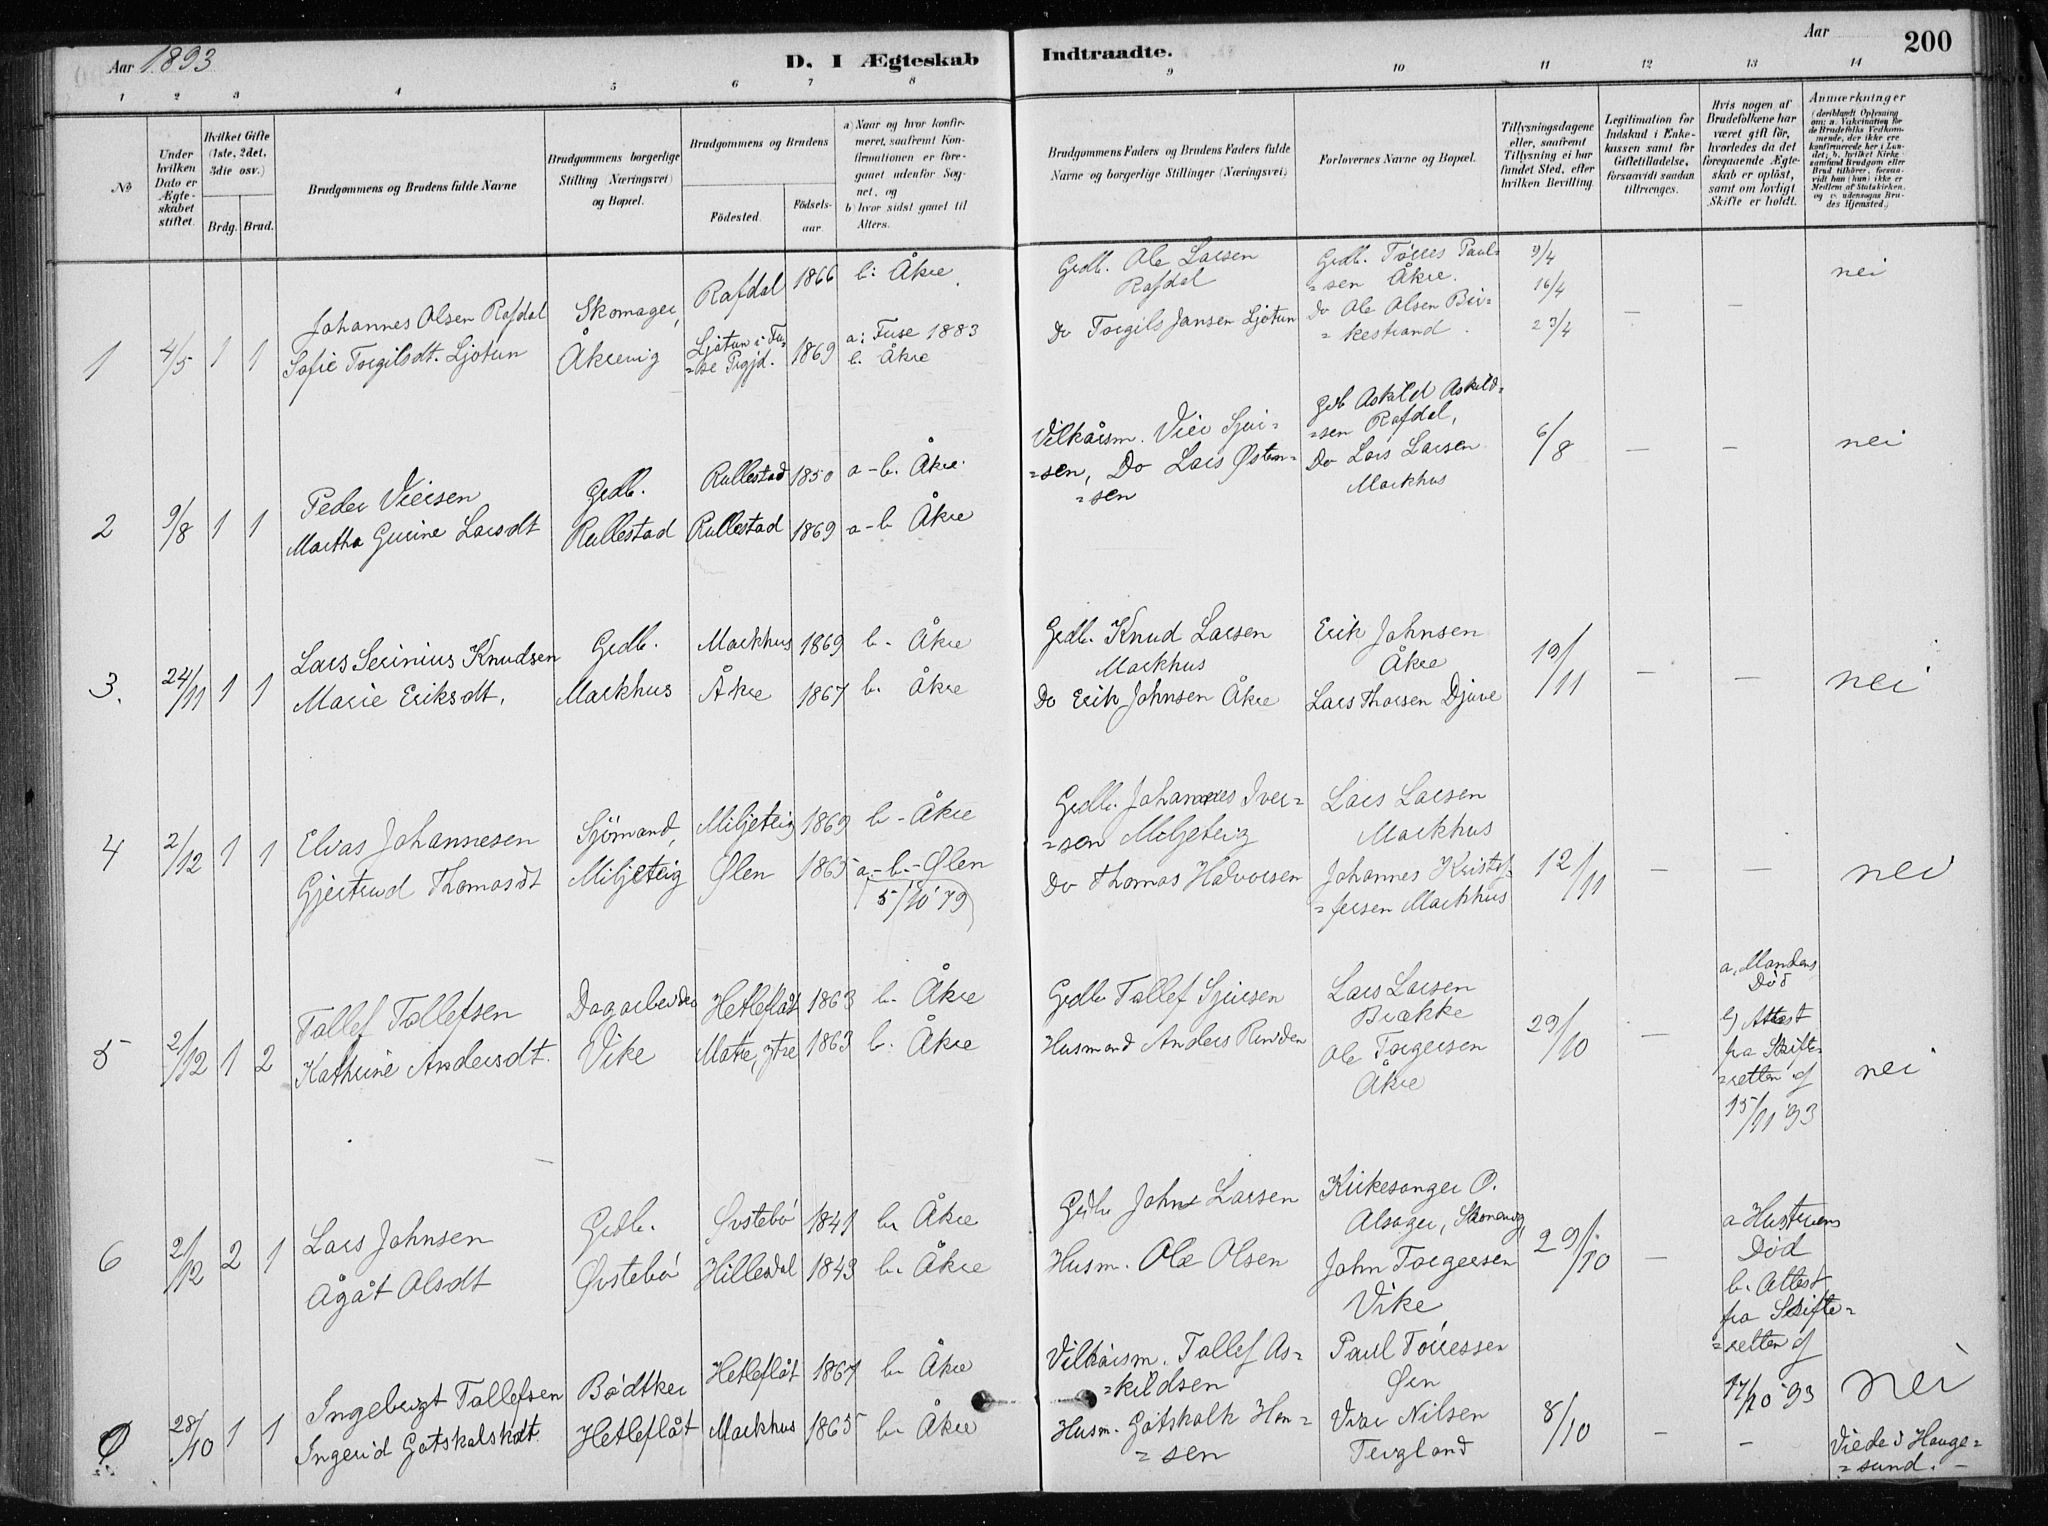 Aar 1893
D. I Ægteskab Indtraadte.
Aar
200
1 2 3 4 5 6 7 8 9 10 11 12 13 14
No
Under hvilken Dato er Ægteskabet stiftet.
Hvilket Gifte (1ste, 2det, 3die osv.)
Brdg. Brud.
Brudgommens og Brudens fulde Navne
Brudgommens borgerlige Stilling (Næringsvei) og Bopæl.
Brudgommens og Brudens
Fødested.
Fødselsaar.
a) Naar og hvor konfirmeret, saafremt Konfirmationen er foregaaet udenfor Sognet, og
b) hvor sidst gaaet til Alters.
Brudgommens Faders og Brudens Faders fulde Navne og borgerlige Stillinger (Næringsvei)
Forlovernes Navne og Bopæl.
Tillysningsdagene eller, saafremt Tillysning ei har fundet Sted, efter hvilken Bevilling.
Legitimation for Indskud i Enkekassen samt for Giftetilladelse, forsaavidt saadan tiltrænges.
Hvis nogen af Brudefolkene har været gift før, hvorledes da det foregaaende Ægteskab er opløst, samt om lovligt Skifte er holdt.
Anmærkninger (deriblandt Oplysning om: a. Vakcination for de Brudefolks Vedkommende, der ikke ere konfirmerede her i Landet; b. hvilket Kirkesamfund Brudgom eller Brud tilhører, forsaavidt han (hun) ikke er Medlem af Statskirken, og c. udensogns Brudes Hjemsted.)
1 4/5 1 1
Johannes Olsen Rafdal
Sofie Torgilsdt. Ljotun
Skomager, Åkrevig
Rafdal 1866 b: Åkre.
Ljotun i Fuse Prgjd. 1869 a: Fuse 1883
b. Åkre
Grdb. Ole Larsen Rafdal
Do Torgils Jansen Ljotun
Grdb. Tørres Paul=
=sen Åkre.
Do Ole Olsen Bir=
=kestrand.
9/4
16/4
23/4
– – nei
2 9/8 1 1
Peder Viersen
Martha Gurine Larsdt
Grdb.
Rullestad
Rullestad 1850 a-b. Åkre.
Rullestad 1869 a-b Åkre
Vilkårsm. Vier Sjur=
=sen, Do Lars Østen=
=sen
Grdb Askild Askild=
=sen Rafdal,
Do Lars Larsen
Markhus
6/8 – – nei
3. 24/11 1 1
Lars Serinius Knudsen
Marie Eriksdt.
Grdb.
Markhus
Markhus 1869 b. Åkre
Åkre 1867 b. Åkre
Grdb. Knud Larsen
Markhus
Do Erik Johnsen Åkre
Erik Johnsen
Åkre
Lars Thorsen Djuve
19/11 – – nei
4 2/12 1 1
Elvas Johannesen
Gjertrud Thomasdt
Sjømand,
Miljeteig
Miljeteig 1869 b-Åkre
Ølen 1865 a.-b.-Ølen
5/10 '79
Grdb. Johannes Iver=
=sen Miljeteig
Do Thomas Halvorsen
Lars Larsen
Markhus
Johannes Kristof=
=fersen Markhus
12/11 – – nei
5 2/12 1 2
Tollef Tollefsen
Kathrine Andersdt.
Dagarbeider
Vike
Hetleflåt 1863 b. Åkre
Matre, Ytre 1863 b. Åkre
Grdb. Tollef Sjursen
Husmand Anders Rinden
Lars Larsen
Brække
Ole Torgersen
Åkre
29/10 –
a. Mandens
Død
b) Attest
fra Skifte=
=retten af
15/11 93
nei
6 2/12 2 1
Lars Johnsen
Ågåt Olsdt
Grdb.
Østebø
Østebø 1841 b. Åkre
Hillesdal 1843 b. Åkre
Grdb John Larsen
Husm. Ole Olsen
Kirkesanger O.
Alsager, Skonevig,
John Torgersen
Vike
29/10 –
a Hustruens
Død
b. Attest
fra Skifte=
=retten af
17/10 93
nei
28/10 1 1
Ingebrigt Tollefsen
Ingerid Gotskalskdt.
Bødtker
Hetleflåt
Hetleflåt 1867 b. Åkre
Markhus 1865 b. Åkre
Vilkårsm. Tollef As=
=kildsen
Husm. Gotskalk Han=
=sen
Paul Tørressen
Øen
Ivar Nilsen
Teigland
8/10 – –
Viede i Hauge=
=sund. –